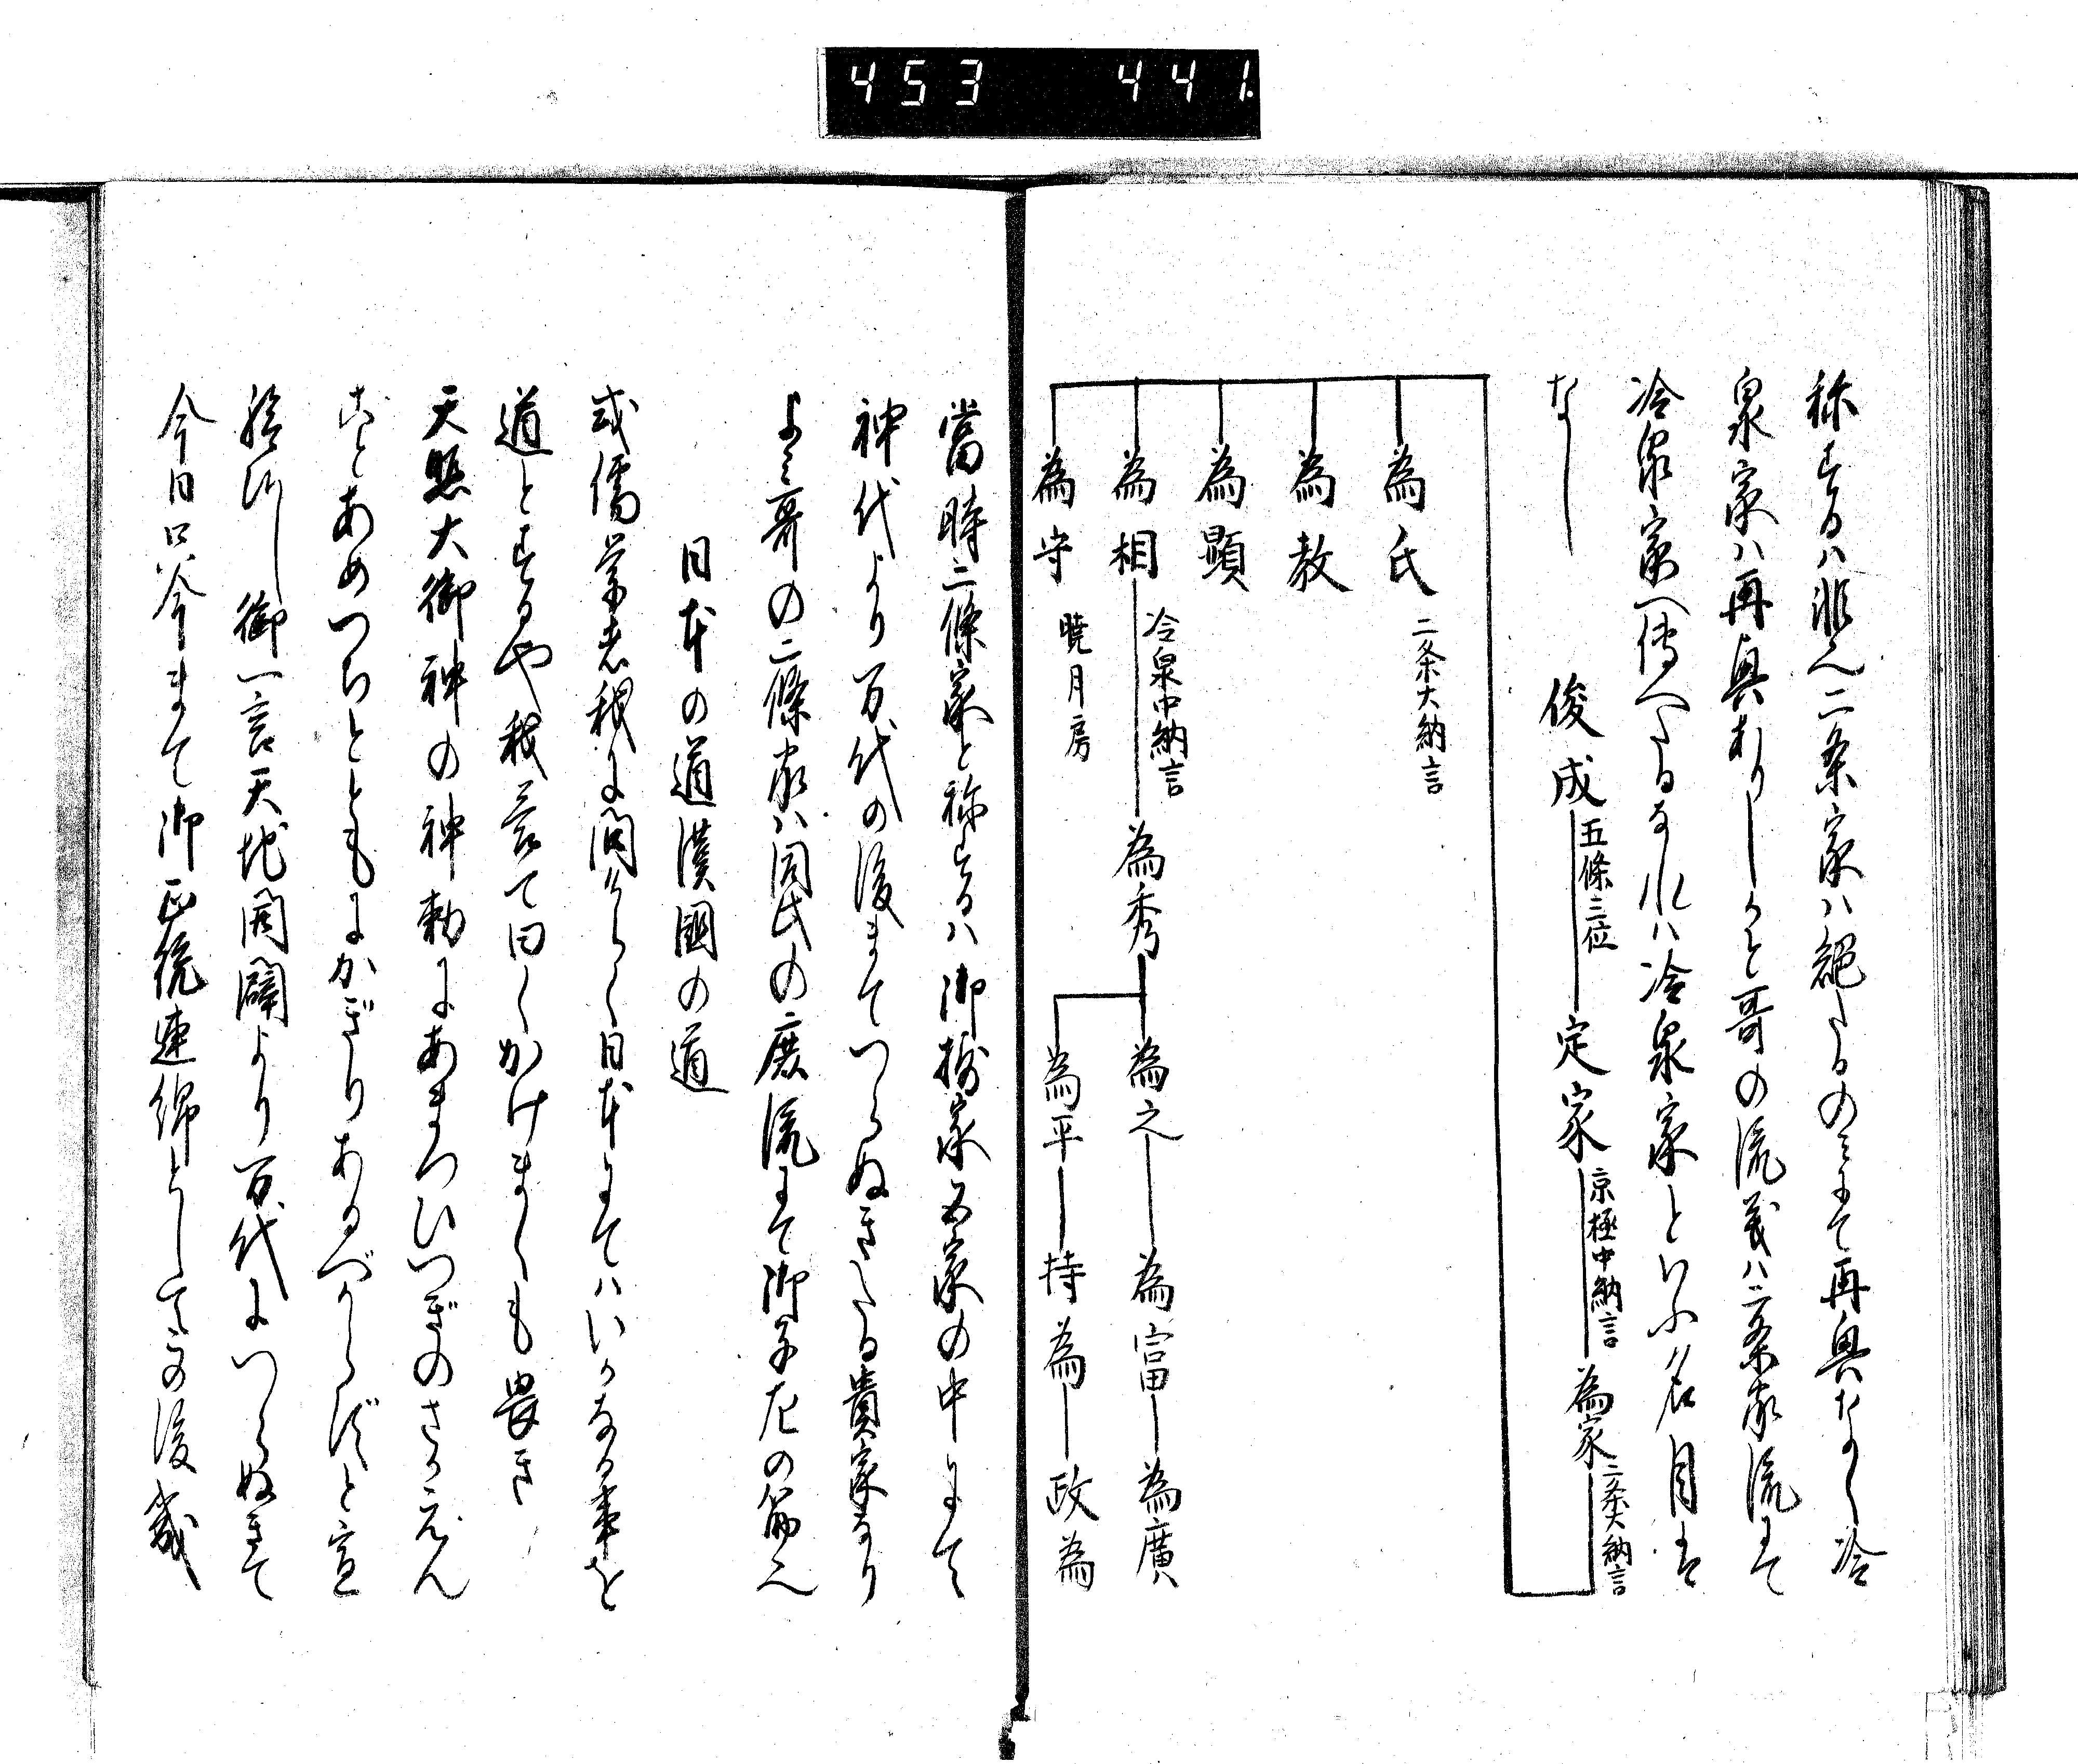 453 441.
称するハ非也二条家ハ絶たるのミにて再興なし冷
泉家ハ再興ありしかと哥の流義ハ二条家流にて
冷泉家へ傳へたるなれハ冷泉家といふ名目は
なし
俊成 五條三位 定家 京極中納言 為家 二条大納言
為氏 二条大納言
為教
為顯
為相 冷泉中納言 為秀 為之 為富 為廣
為平 持為 政為
為守 暁月房
當時二條家と称するハ御摂家五家の中にて
神代より百代の後まてつらぬきたる貴家なり
よミ哥の二條家ハ同氏の庶流にて御子左の筋也
日本の道漢國の道
或儒学者我に問けらく日本にてハいかなる事を
道とするや我答て曰くかけまくも畏き
天照大御神の神勅にあまつひつぎのさかえん
ことあめつちとともにかぎりあるべからずと宣
給ひし御一言天地開闢より百代につらぬきて
今日只今まて御正統連綿としてその後幾